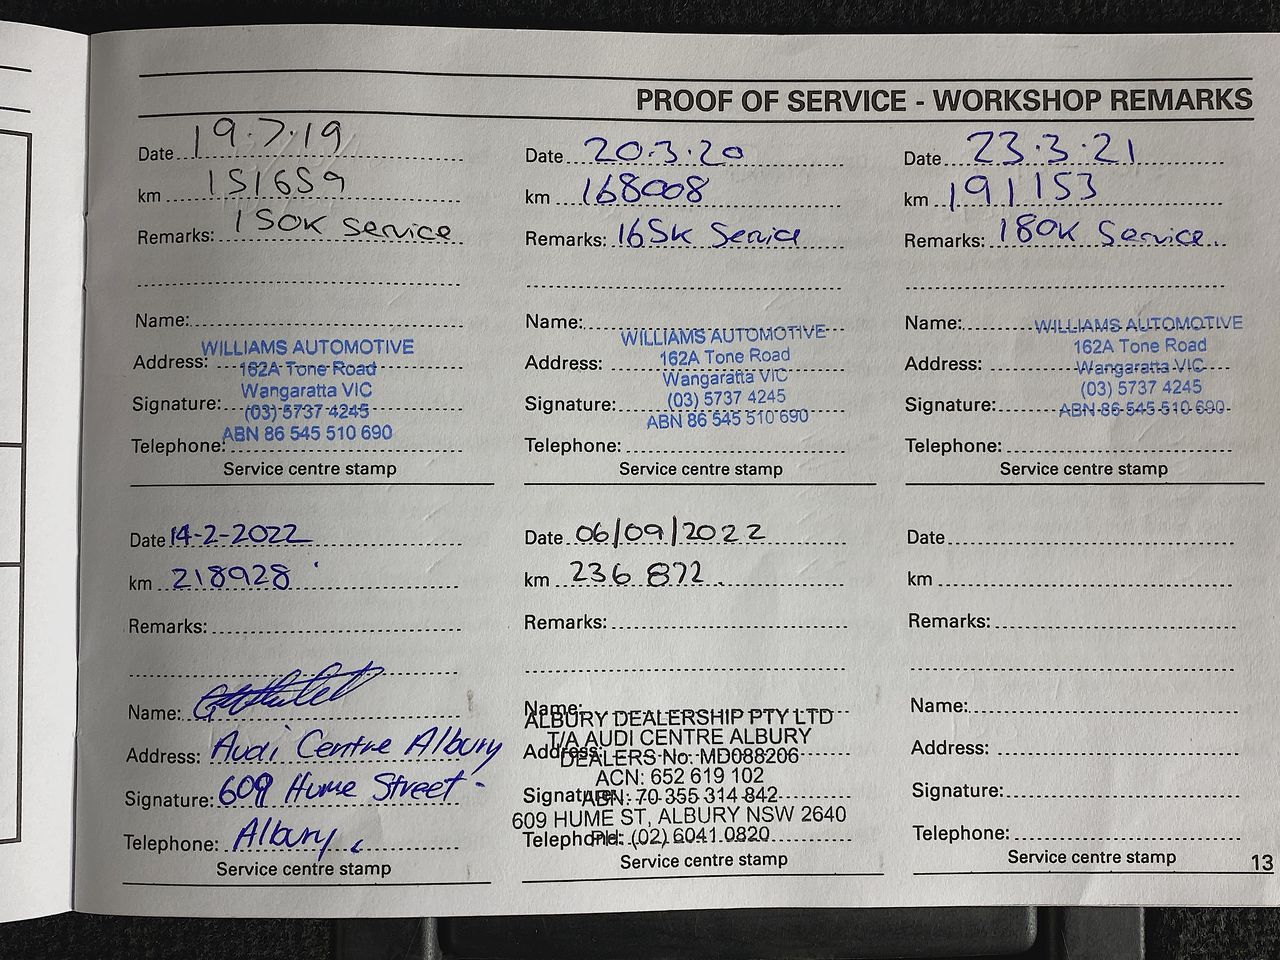 PROOF OF SERVICE - WORKSHOP REMARKS
Date 19.7.19
km 151659
Remarks: 150K Service
Name:
Address:
Signature:
Telephone:
WILLIAMS AUTOMOTIVE
162A Tone Road
Wangaratta VIC
(03) 5737 4245
ABN 86 545 510 690
Service centre stamp
Date 20.3.20
km 168008
Remarks: 165K Service
Name:
Address:
Signature:
Telephone:
WILLIAMS AUTOMOTIVE
162A Tone Road
Wangaratta VIC
(03) 5737 4245
ABN 86 545 510 690
Service centre stamp
Date 23.3.21
km 191153
Remarks: 180K Service
Name:
Address:
Signature:
Telephone:
WILLIAMS AUTOMOTIVE
162A Tone Road
Wangaratta VIC
(03) 5737 4245
ABN 86 545 510 690
Service centre stamp
Date 14-2-2022
km 218928
Remarks:
Name:
Address: Audi Centre Albury
Signature: 609 Hume Street
Telephone: Albury
Service centre stamp
Date 06/09/2022
km 236 872
Remarks:
Name:
Address:
Signature:
Telephone:
ALBURY DEALERSHIP PTY LTD
T/A AUDI CENTRE ALBURY
DEALERS No: MD088206
ACN: 652 619 102
ABN: 70 355 314 842
609 HUME ST, ALBURY NSW 2640
PH: (02) 6041 0820
Service centre stamp
Date
km
Remarks:
Name:
Address:
Signature:
Telephone:
Service centre stamp
13